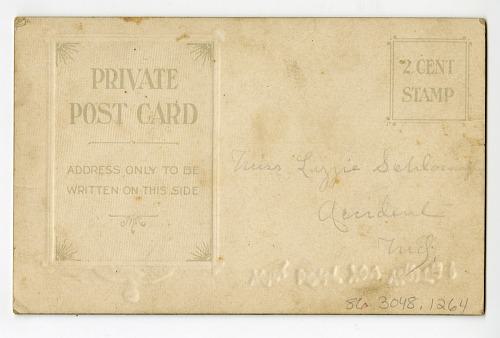 PRIVATE
POST CARD
ADDRESS ONLY TO BE
WRITTEN ON THIS SIDE
2 CENT
STAMP
Miss Lizzie
Accident
Md.
86.3048.1264